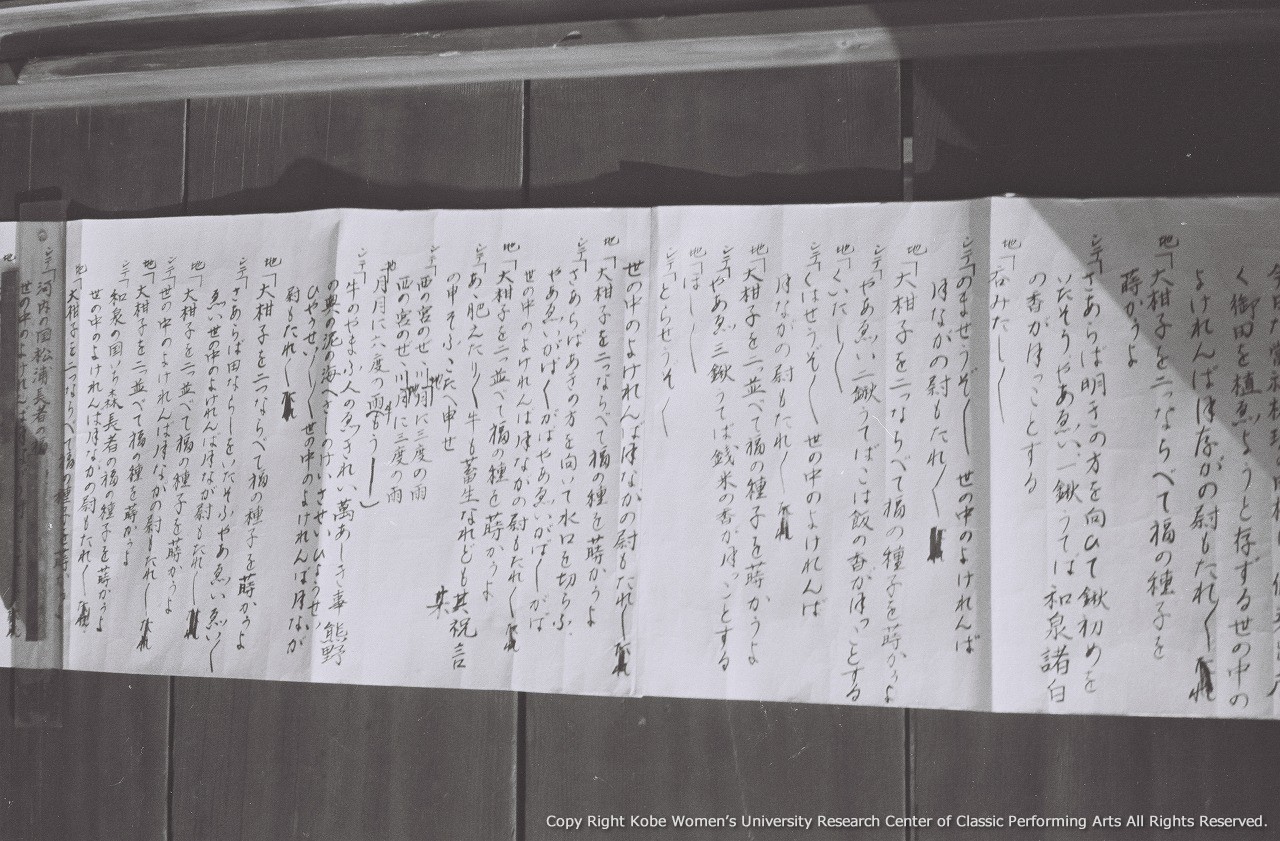 く御田を植ゑようと存ずる世の中の
よけれんばほながの尉もたれ〱
地「大柑子を二つならべて福の種子を
蒔かうよ
シテ「さあらは明きの方を向ひて鍬初めを
いたそうやあゑい、一鍬うては和泉諸白
の香がほっことする
地「呑みたし〱
シテ「のませうぞ〱 世の中のよけれんば
ほながの尉もたれ〱
地「大柑子を二つならべて福の種子を蒔かうよ
シテ「やあゑい二鍬うてばこは飯の香がほっことする
地「くいたし〱
シテ「くはせうぞ〱 世の中のよけれんば
ほながの尉もたれ〱
地「大柑子を二つ並べて福の種子を蒔かうよ
シテ「やあゑ三鍬うては銭米の香がほっことする
地「ほし〱
シテ「とらせうぞ〱
世の中のよけれんばほながの尉もたれ〱
地「大柑子を二つならべて福の種を蒔かうよ
シテ「さあらばあきの方を向いて水口を切らふ
やあゑいがば〱がばやあゑいがば〱がば
世の中のよけれんはほながの尉もたれ〱
地「大柑子を二つ並べて福の種を蒔かうよ
シテ「あゝ肥えたり〱牛も畜生なれども其祝言
の申そふこたへ申せ
シテ「西の宮のせ、川に三度の雨
西の宮のせ、川に三度の雨
地「月に六度の雨
シテ「牛のやま小人の
ひやうせい〱世の中のよけれんばほなが
尉もたれ〱
地「大柑子を二つならべて福の種子を蒔かうよ
シテ「さあらば田ならしをいたそふやあゑいゑい〱
ゑい世の中のよけれんばほなが尉もたれ〱
地「大柑子を二つ並べて福の種子を蒔かうよ
シテ「世の中のよけれんばほながの尉もたれ〱
地「大柑子を二つ並べて福の種を蒔かうよ
シテ「和泉の国いち森長者の福の種子を蒔かうよ
世の中のよけれんはほながの尉もたれ〱
地「大柑子を二つならべて福の種子を蒔か
シテ「河内の国松浦長者の福
世の中のよけれんは
Copy Right Kobe Women's University Research Center of Classic Performing Arts All Rights Reserved.